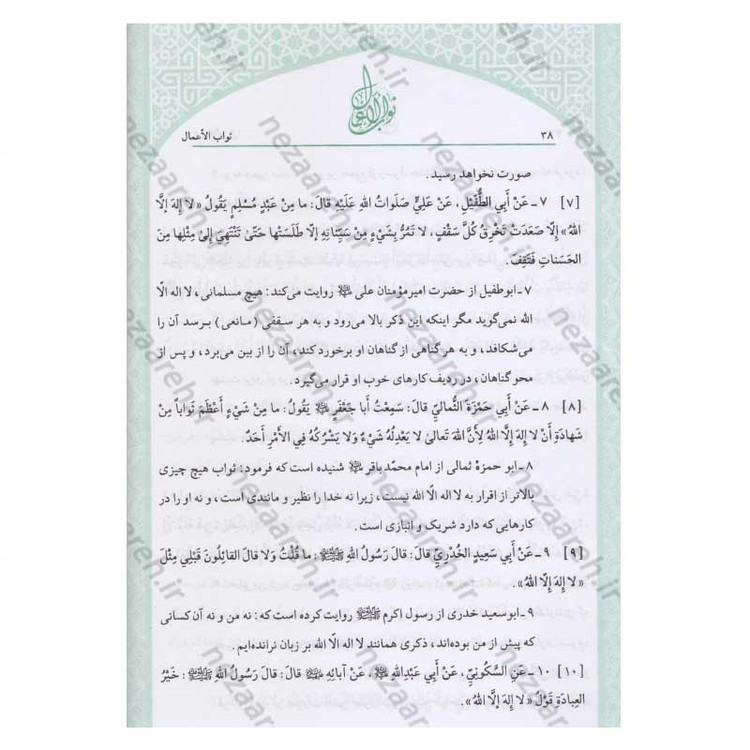 ثواب الأعمال
۳۸ ثواب الأعمال
صورت نخواهد رسید .
[۷] ۷ ـ عَنْ أَبِي الطُّفَيْلِ ، عَنْ عَلِيٍّ صَلَواتُ اللهِ عَلَيْهِ قالَ : ما مِنْ عَبْدٍ مُسْلِمٍ يَقُولُ « لا إِلهَ إِلَّا
اللهُ » إِلّا صَعَدَتْ تَخْرِقُ كُلَّ سَقْفٍ ، لا تَمُرُّ بِشَيْءٍ مِنْ سَيِّئاتِهِ إِلّا طَلَسَتْها حَتّىٰ تَنْتَهِيَ إِلىٰ مِثْلِها مِنَ
الحَسَناتِ فَتَقِفَ .
۷ ـ ابوطفیل از حضرت امیرمؤمنان علی ﷺ روایت می‌کند : هیچ مسلمانی ، لا اله الّا
الله نمی‌گوید مگر اینکه این ذکر بالا می‌رود و به هر سقفی ( مانعی ) برسد آن را
می‌شکافد ، و به هرگناهی از گناهان او برخورد کند ، آن را از بین می‌برد ، و پس از
محو گناهان ، در ردیف کارهای خوب او قرار می‌گیرد .
[۸] ۸ ـ عَنْ أَبِي حَمْزَةَ الثُّمالِيِّ قالَ : سَمِعْتُ أَبا جَعْفَرٍ ﷺ يَقُولُ : ما مِنْ شَيْءٍ أَعْظَمَ ثَواباً مِنْ
شَهادَةِ أَنْ لا إِلهَ إِلَّا اللهُ لِأَنَّ اللهَ تَعالىٰ لا يَعْدِلُهُ شَيْءٌ وَلا يَشْرَكُهُ فِي الأَمْرِ أَحَدٌ .
۸ ـ ابو حمزهٔ ثمالی از امام محمّدباقر ﷺ شنیده است که فرمود : ثواب هیچ چیزی
بالاتر از اقرار به لا اله الّا الله نیست ، زیرا نه خدا را نظیر و مانندی است ، و نه او را در
کارهایی که دارد شریک و انبازی است .
[۹] ۹ ـ عَنْ أَبِي سَعِيدٍ الخُدْرِيِّ قالَ : قالَ رَسُولُ اللهِ ﷺ : ما قُلْتُ وَلا قالَ القائِلُونَ قَبْلِي مِثْلَ
« لا إِلهَ إِلَّا اللهُ » .
۹ ـ ابوسعید خدری از رسول اکرم ﷺ روایت کرده است که : نه من و نه آن کسانی
که پیش از من بوده‌اند ، ذکری همانند لا اله الّا الله بر زبان نرانده‌ایم .
[۱۰] ۱۰ ـ عَنِ السَّكُونِيِّ ، عَنْ أَبِي عَبْدِاللهِ ﷺ ، عَنْ آبائِهِ ﷺ قالَ : قالَ رَسُولُ اللهِ ﷺ : خَيْرُ
العِبادَةِ قَوْلُ « لا إِلهَ إِلَّا اللهُ » .
nezaareh.ir